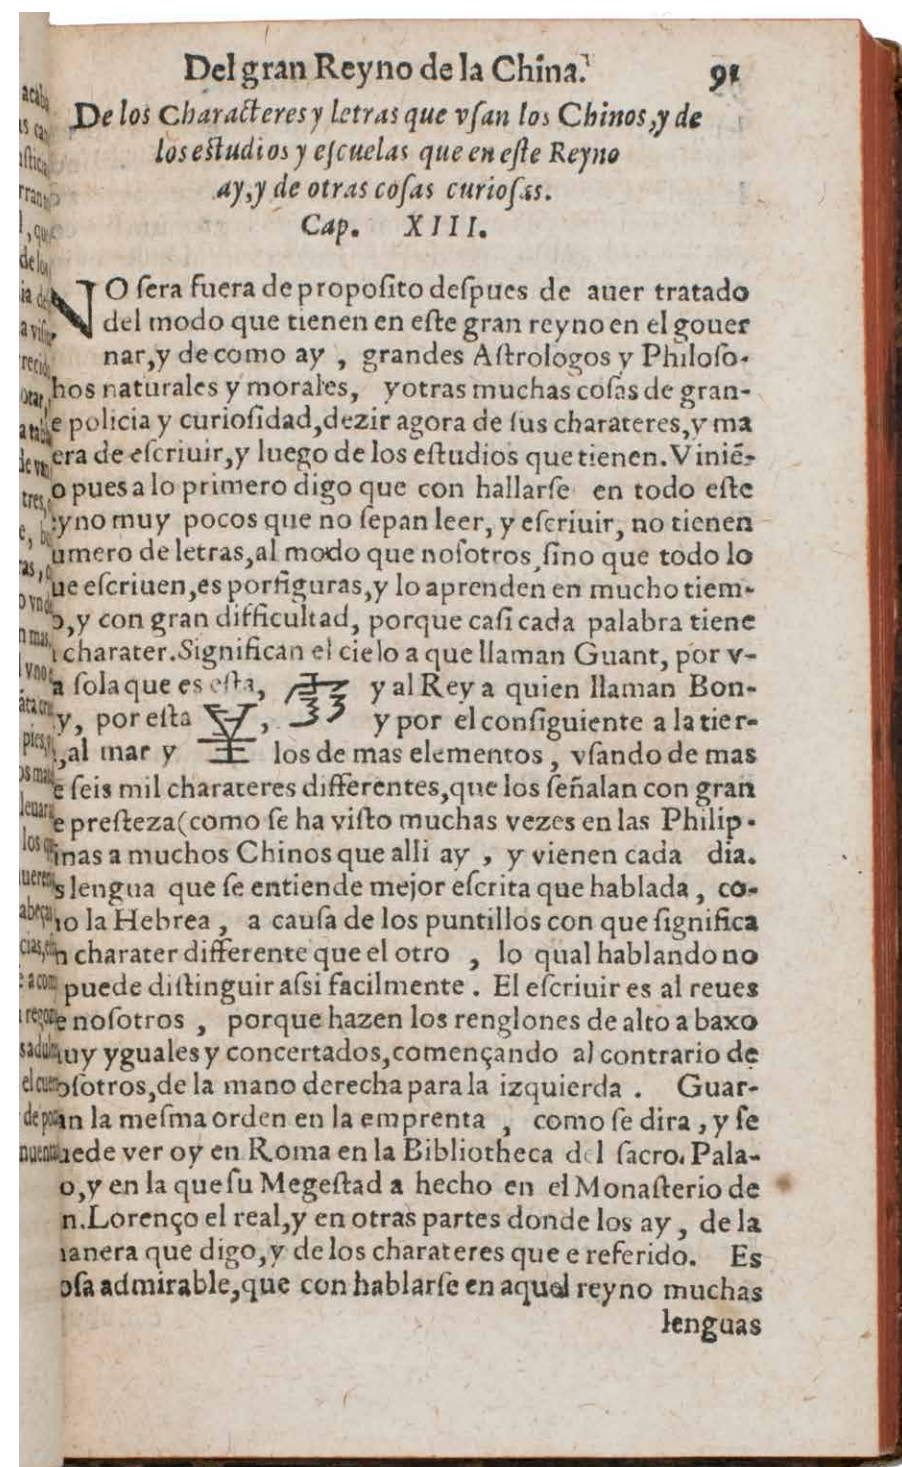 Del gran Reyno de la China. 91
De los Characteres y letras que vſan los Chinos, y de
los eſtudios y eſcuelas que en eſte Reyno
ay, y de otras coſas curioſas.
Cap. XIII.
NO ſera fuera de propoſito deſpues de auer tratado
del modo que tienen en eſte gran reyno en el gouer
nar, y de como ay , grandes Aſtrologos y Philoſo-
hos naturales y morales, y otras muchas coſas de gran-
e policia y curioſidad, dezir agora de ſus charateres, y ma
era de eſcriuir, y luego de los eſtudios que tienen. Vinié-
o pues a lo primero digo que con hallarſe en todo eſte
yno muy pocos que no ſepan leer, y eſcriuir, no tienen
umero de letras, al modo que noſotros ſino que todo lo
ue eſcriuen, es por figuras, y lo aprenden en mucho tiem-
o, y con gran difficultad, porque caſi cada palabra tiene
charater. Significan el cielo a que llaman Guant, por v-
a ſola que es eſta, y al Rey a quien llaman Bon-
y, por eſta , y por el conſiguiente a la tier-
, al mar y los de mas elementos, vſando de mas
e ſeis mil charateres differentes, que los ſeñalan con gran
e preſteza (como ſe ha viſto muchas vezes en las Philip-
inas a muchos Chinos que alli ay , y vienen cada dia.
s lengua que ſe entiende mejor eſcrita que hablada, co-
o la Hebrea , a cauſa de los puntillos con que ſignifica
n charater differente que el otro , lo qual hablando no
puede diſtinguir aſsi facilmente . El eſcriuir es al reues
e noſotros , porque hazen los renglones de alto a baxo
uy yguales y concertados, començando al contrario de
oſotros, de la mano derecha para la izquierda . Guar-
an la meſma orden en la emprenta , como ſe dira, y ſe
uede ver oy en Roma en la Bibliotheca del ſacro. Pala-
o, y en la que ſu Megeſtad a hecho en el Monaſterio de
n. Lorenço el real, y en otras partes donde los ay, de la
anera que digo, y de los charateres que e referido. Es
oſa admirable, que con hablarſe en aquel reyno muchas
lenguas